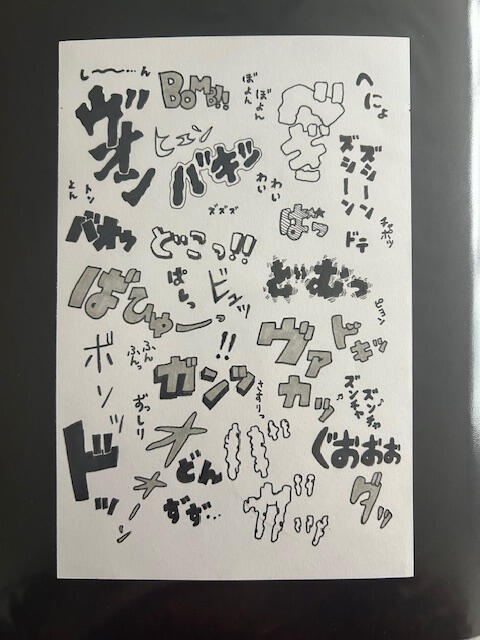 し〜…ん
BOMB!!
ぼよん
ぼよん
へにょ
ヴオン
ヒュン
バキッ
わい
わい
ズシーン
ズシーン
トン
とん
ズズズ
ばっ
チャポッ
バオゥ
どこっ!!
ドテ
ぱしっ
ビュッ
どむっ
ばひゅーっ
ピョン
ヴァカッ
ドキッ
!!
ボソッ
ふん
ふんっ
ガンッ
さすりっ
ズンチャ♪
ズンチャ♫
ずっしり
ドッ
どん
ぐおおお
ずず…
ガッ
ダッ